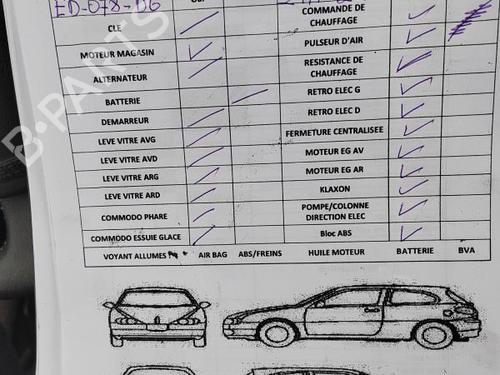 ED-078-DG
CLE
COMMANDE DE CHAUFFAGE
MOTEUR MAGASIN
PULSEUR D'AIR
ALTERNATEUR
RESISTANCE DE CHAUFFAGE
BATTERIE
RETRO ELEC G
DEMARREUR
RETRO ELEC D
LEVE VITRE AVG
FERMETURE CENTRALISEE
LEVE VITRE AVD
MOTEUR EG AV
LEVE VITRE ARG
MOTEUR EG AR
LEVE VITRE ARD
KLAXON
COMMODO PHARE
POMPE/COLONNE DIRECTION ELEC
COMMODO ESSUIE GLACE
Bloc ABS
VOYANT ALLUMES AIR BAG ABS/FREINS HUILE MOTEUR BATTERIE BVA
B-PARTS